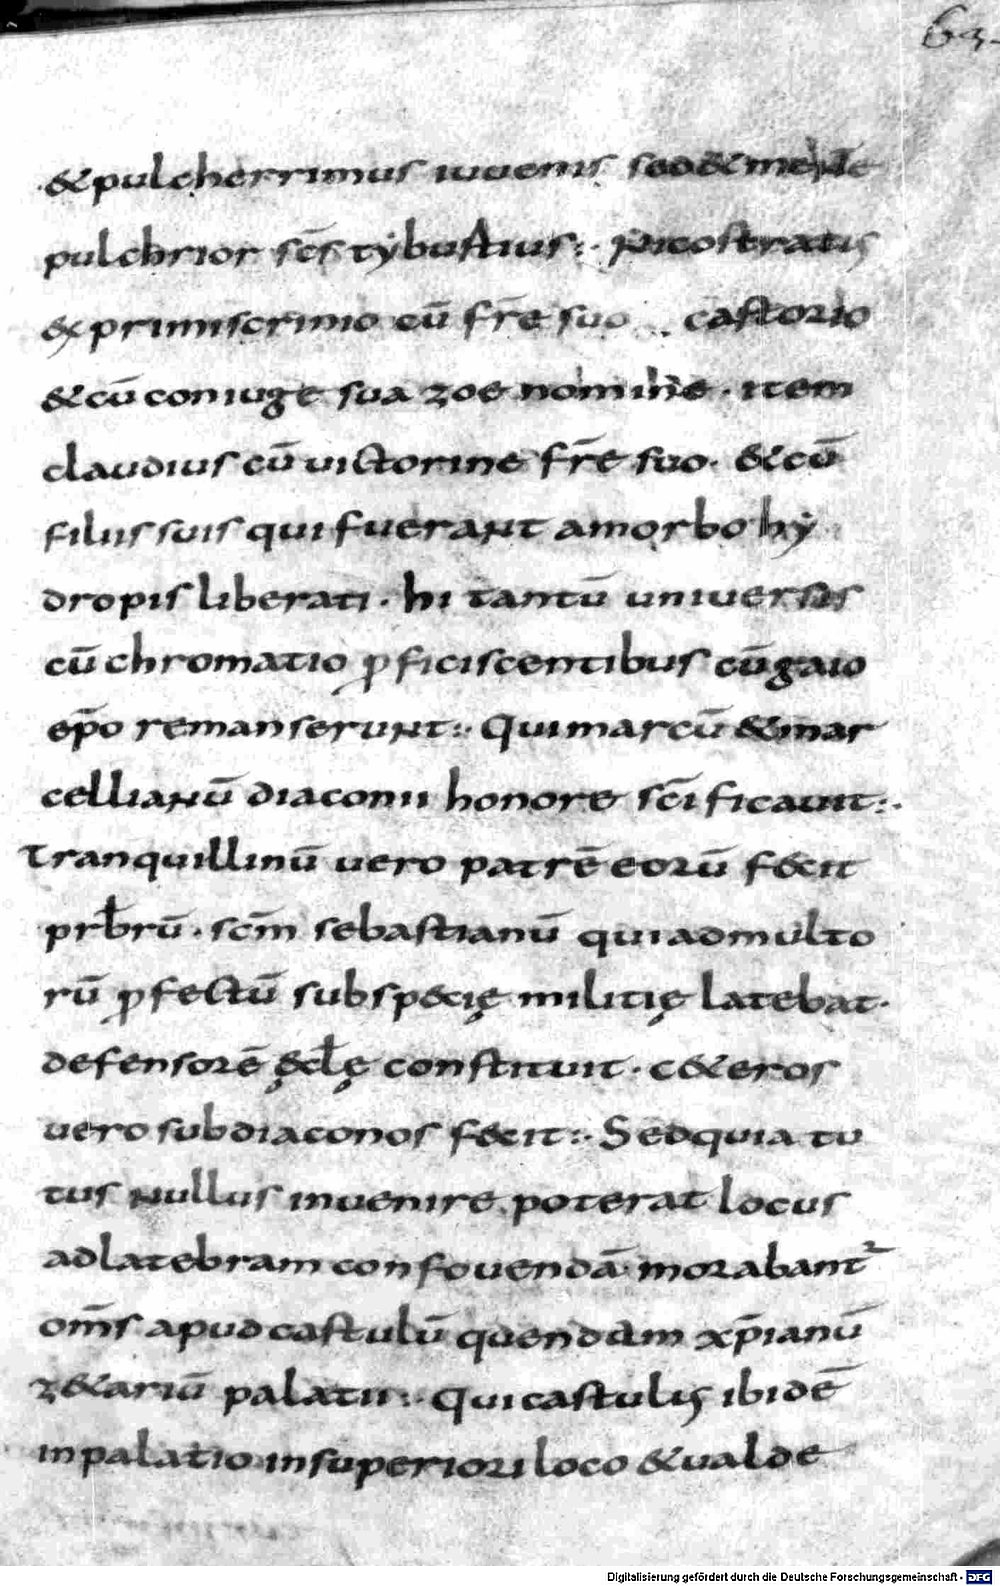 63.
&pulcherrimus iuuenis sed&mente
pulchrior scs̄ tyburtius:· Nicostratus
exprimiscrinio cū fr̄e suo castorio
&cū coniuge sua zoe nomine · item
claudius cū uictorine fr̄e suo · &cū
filiis suis qui fuerant amorbo hy
dropis liberati · hi tantū uniuersis
cū chromatio ꝓficiscentibus cū gaio
ep̄o remanserunt:· Qui marcū &mar
cellianū diaconii honore sc̄ificauit:·
Tranquillinū uero patrē eorū fecit
prb̄rū · scm̄ sebastianū qui admulto
rū ꝓfectū subspecię militię latebat ·
defensorē ęcl̄ę constituit · c&eros
uero subdiaconos fecit:· Sed quia tu
tus nullus inuenire poterat locus
adlatebram confouendā morabant᷑
om̄s apud castulū quendam xp̄ianū
z&ariū palatii:· Qui castulus ibidē
inpalatio insuperiori loco &ualde
Digitalisierung gefördert durch die Deutsche Forschungsgemeinschaft - DFG